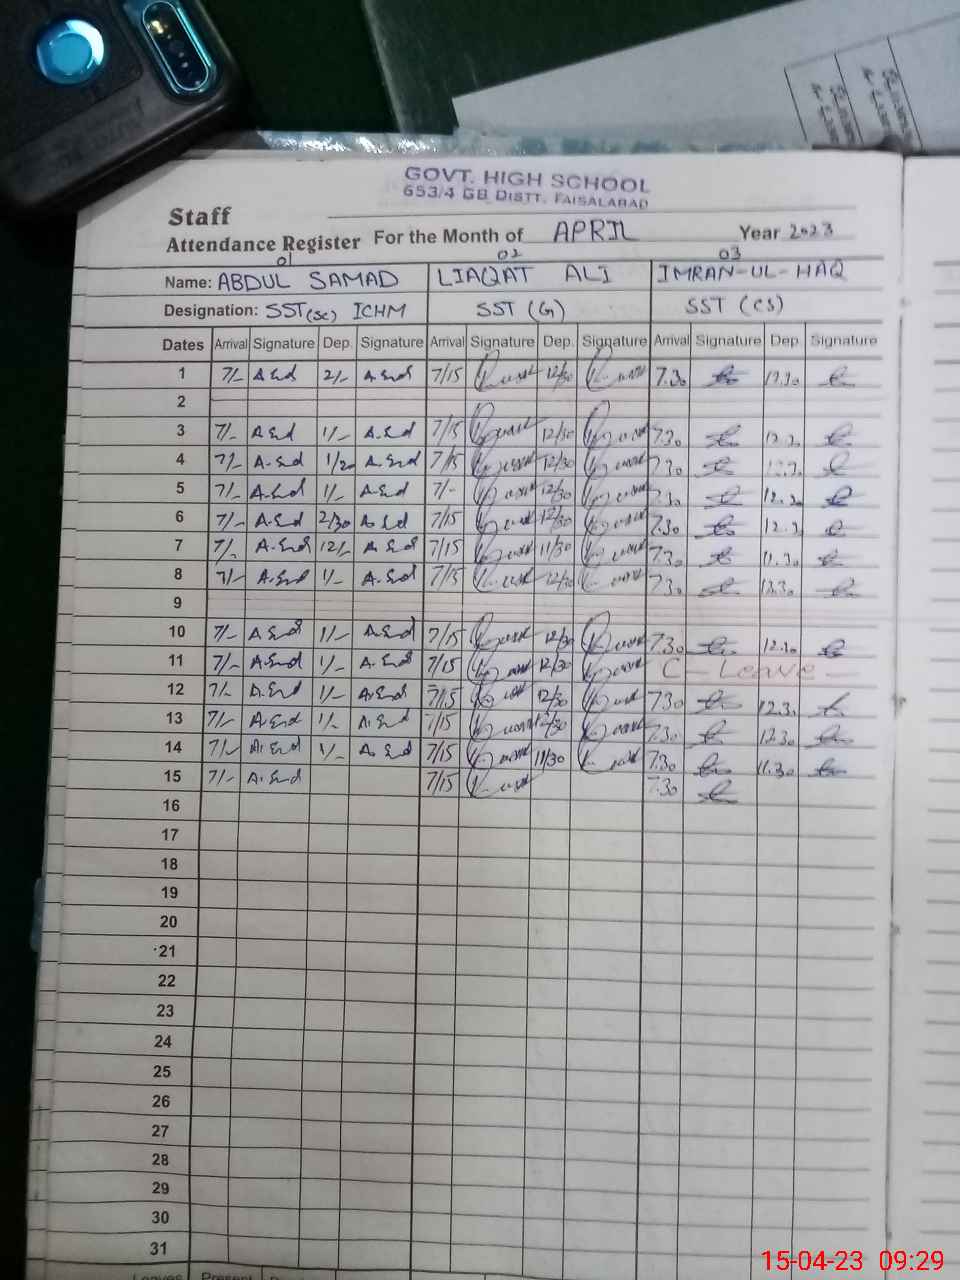 GOVT. HIGH SCHOOL
653/4 GB DISTT. FAISALABAD
Staff
Attendance Register For the Month of APRIL Year 2023
01 02 03
Name: ABDUL SAMAD LIAQAT ALI IMRAN-UL-HAQ
Designation: SST(SC) ICHM SST (G) SST (CS)
Dates Arrival Signature Dep. Signature Arrival Signature Dep. Signature Arrival Signature Dep. Signature
1 7/- 2/- 7/15 12/30 7.30 12.30
2
3 7/- 1/- 7/15 12/30 7.30 12.30
4 7/- 1/20 7/15 12/30 7.30 12.30
5 7/- 1/- 7/- 12/30 7.30 12.30
6 7/- 2/30 7/15 12/30 7.30 12.30
7 7/- 12/- 7/15 11/30 7.30 11.30
8 7/- 1/- 7/15 12/30 7.30 12.30
9
10 7/- 1/- 7/15 12/30 7.30 12.30
11 7/- 1/- 7/15 12/30 C- Leave -
12 7/- 1/- 7/15 12/30 7.30 12.30
13 7/- 1/- 7/15 12/30 7.30 12.30
14 7/- 1/- 7/15 11/30 7.30 11.30
15 7/- 7/15 7.30
16
17
18
19
20
21
22
23
24
25
26
27
28
29
30
31
Leaves Present
15-04-23 09:29